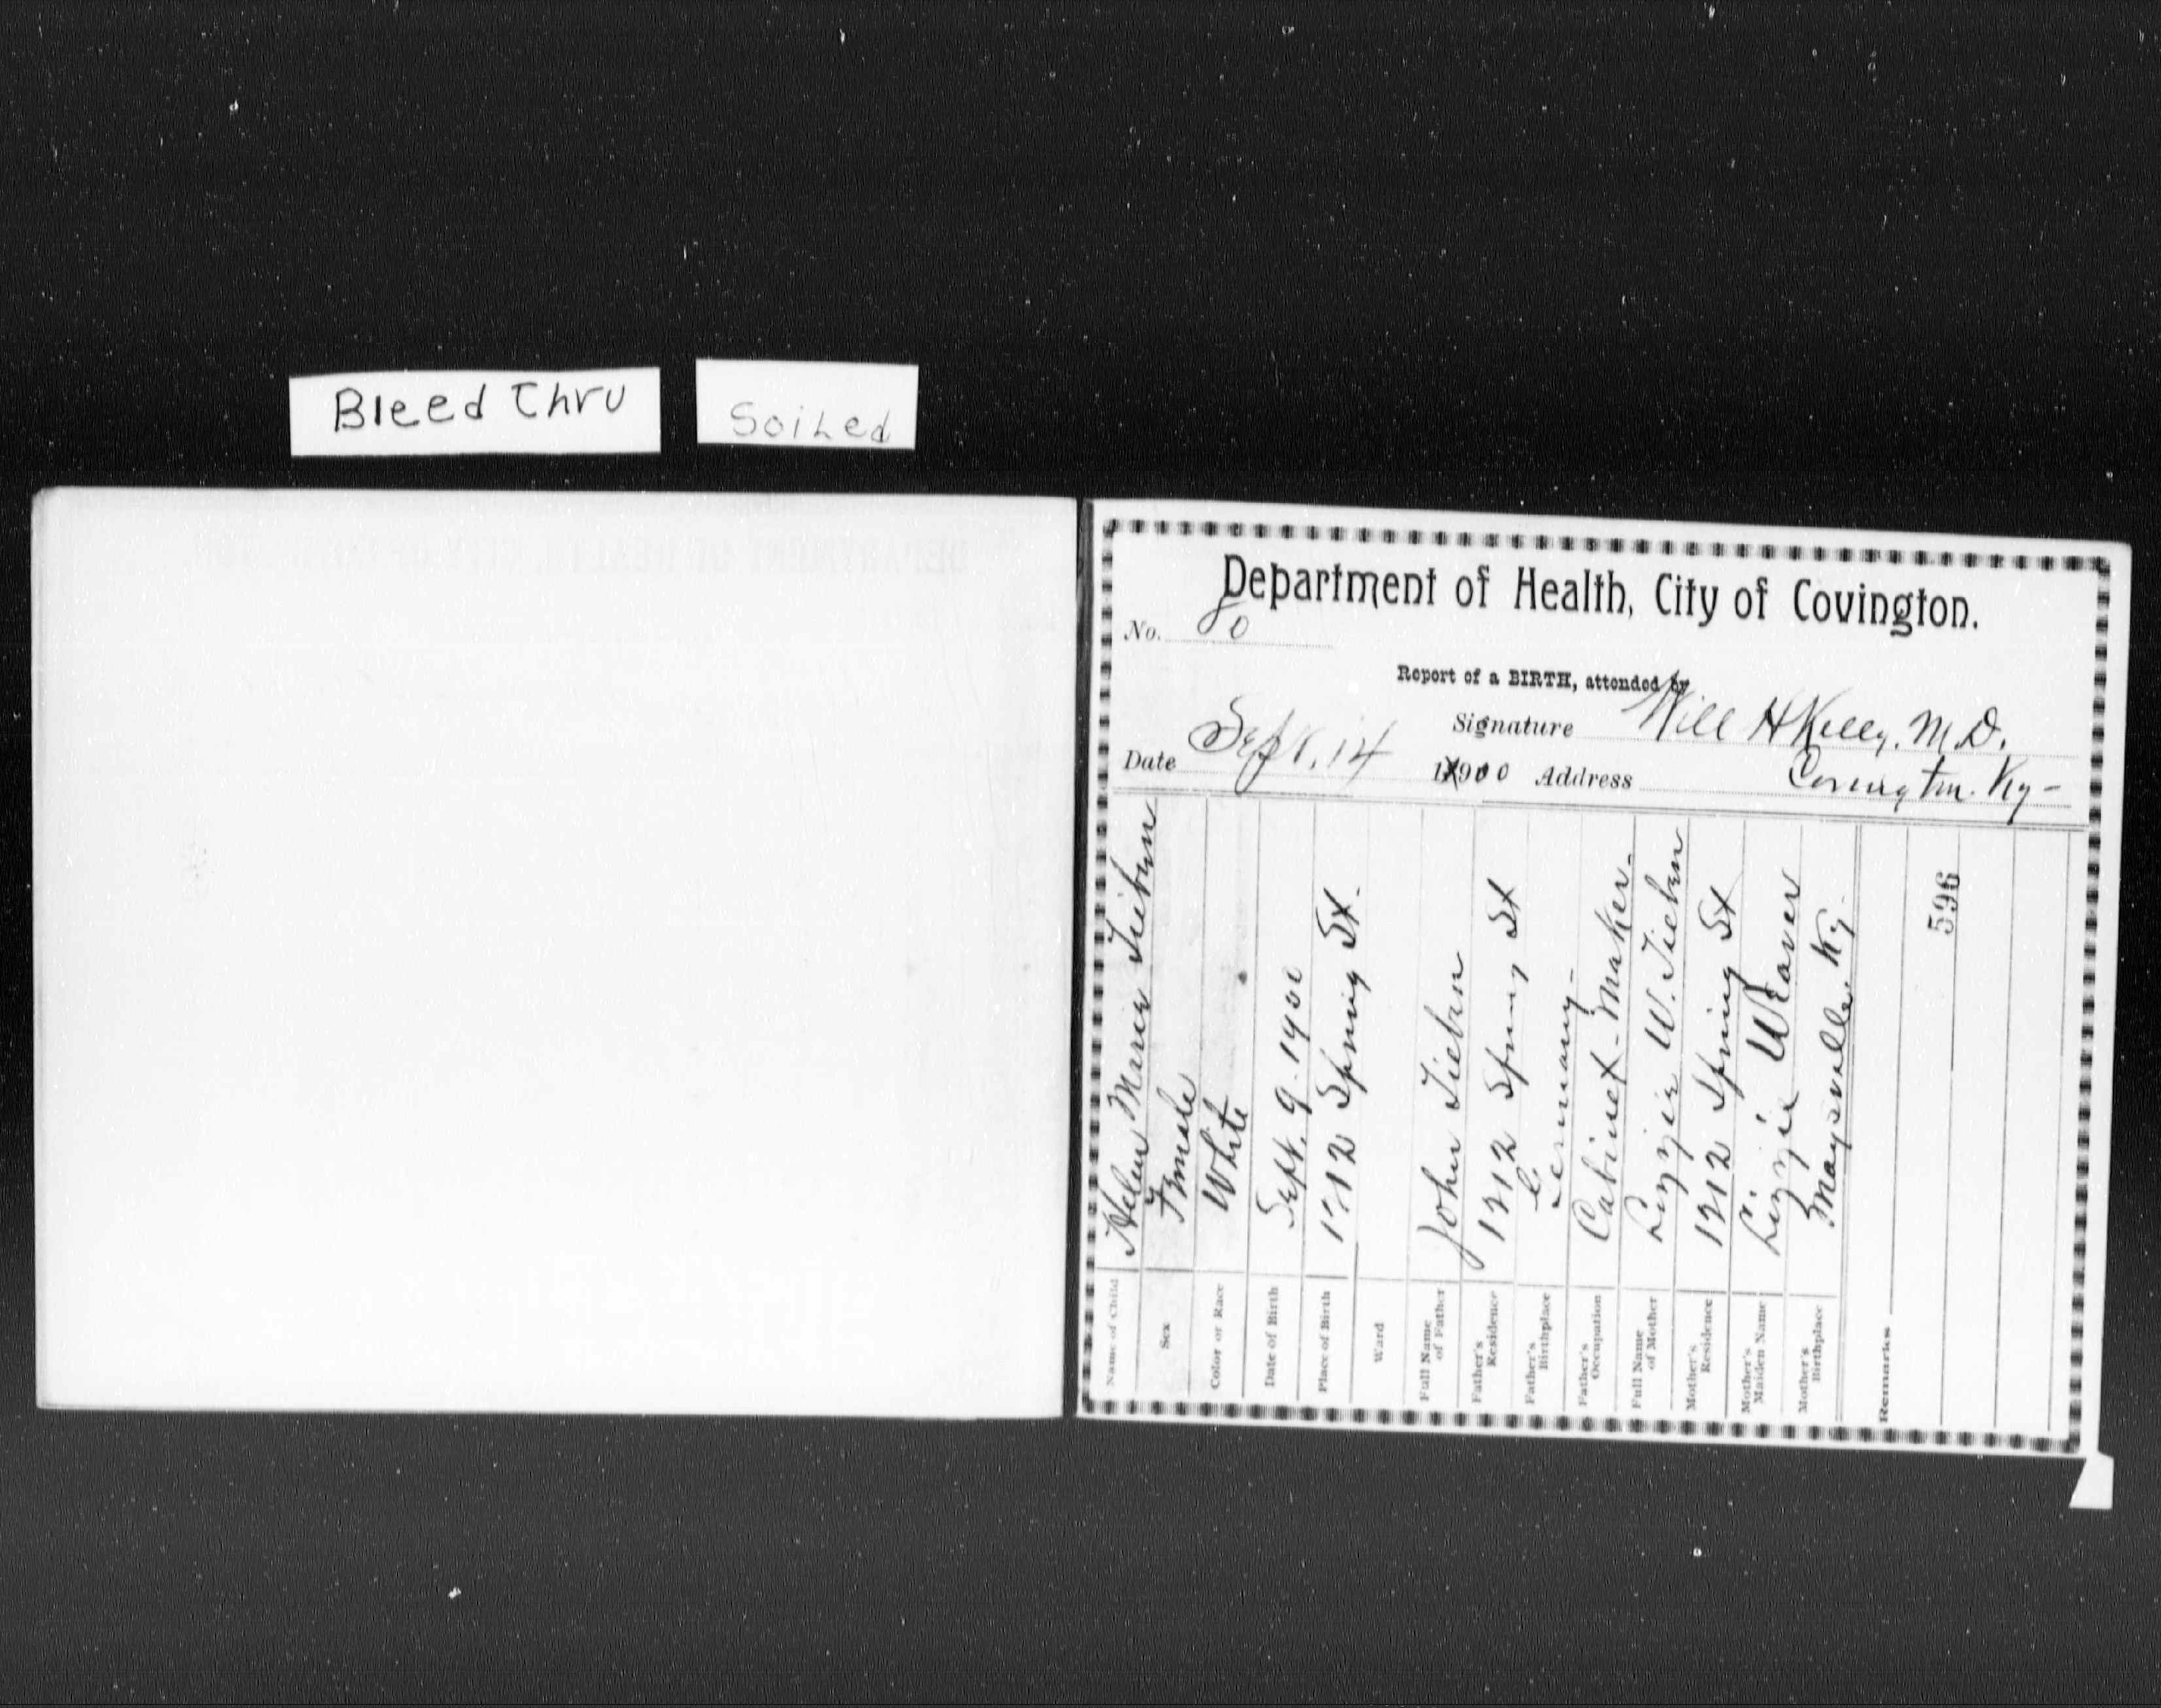 Bleed Thru
Soiled
Department of Health, City of Covington.
No. 80
Report of a BIRTH, attended by
Signature Will H Kelly. M.D.
Date Sept. 14 1900 Address Covington. Ky-
Name of Child Helen Marie Tieben
Sex Female
Color or Race White
Date of Birth Sept. 9. 1900
Place of Birth 1312 Spring St.
Ward
Full Name of Father John Tieben
Father's Residence 1312 Spring St
Father's Birthplace Germany-
Father's Occupation Cabinet-Maker.
Full Name of Mother Lizzie W. Tieben
Mother's Residence 1312 Spring St
Mother's Maiden Name Lizzie Weaver
Mother's Birthplace Maysville, Ky.
Remarks
596